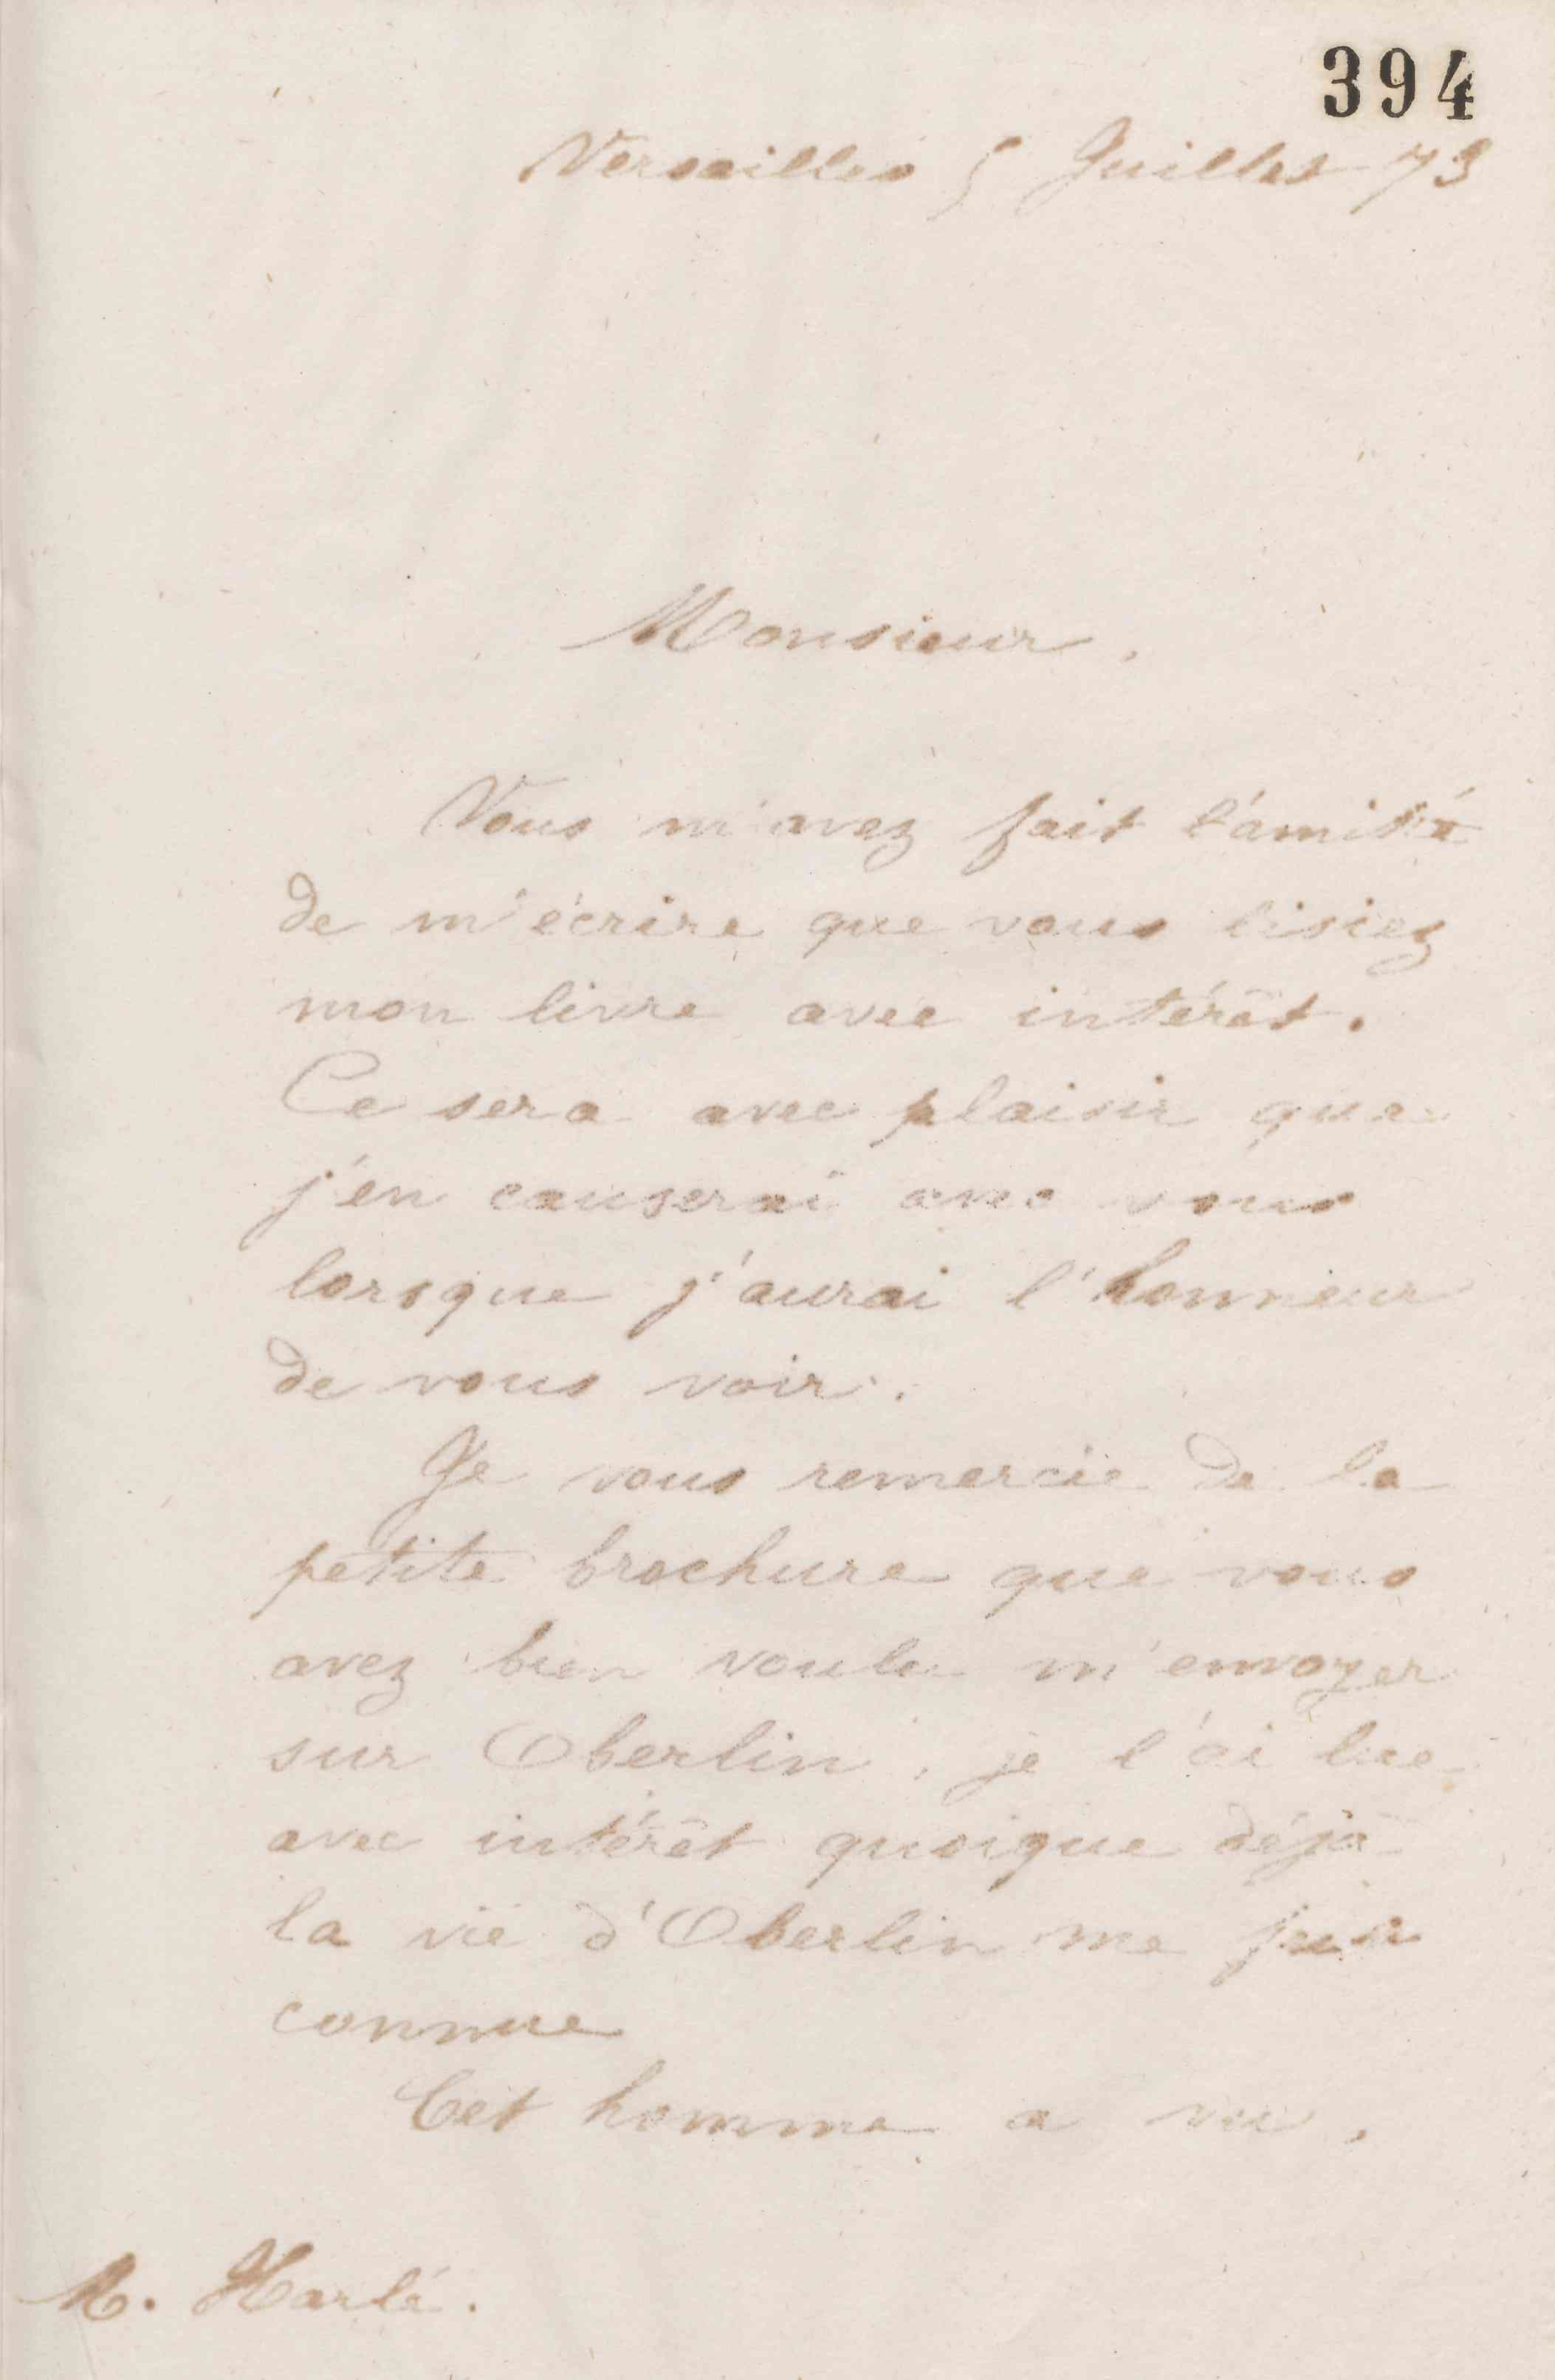 394
Versailles 5 Juillet 73
Monsieur,
Vous m'avez fait l'amitié
de m'écrire que vous lisiez
mon livre avec intérêt.
Ce sera avec plaisir que
j'en causerai avec vous
lorsque j'aurai l'honneur
de vous voir.
Je vous remercie de la
petite brochure que vous
avez bien voulu m'envoyer
sur Oberlin, je l'ai lue
avec intérêt quoique déjà
la vie d'Oberlin me fut
connue
Cet homme a vu,
M. Harlé.